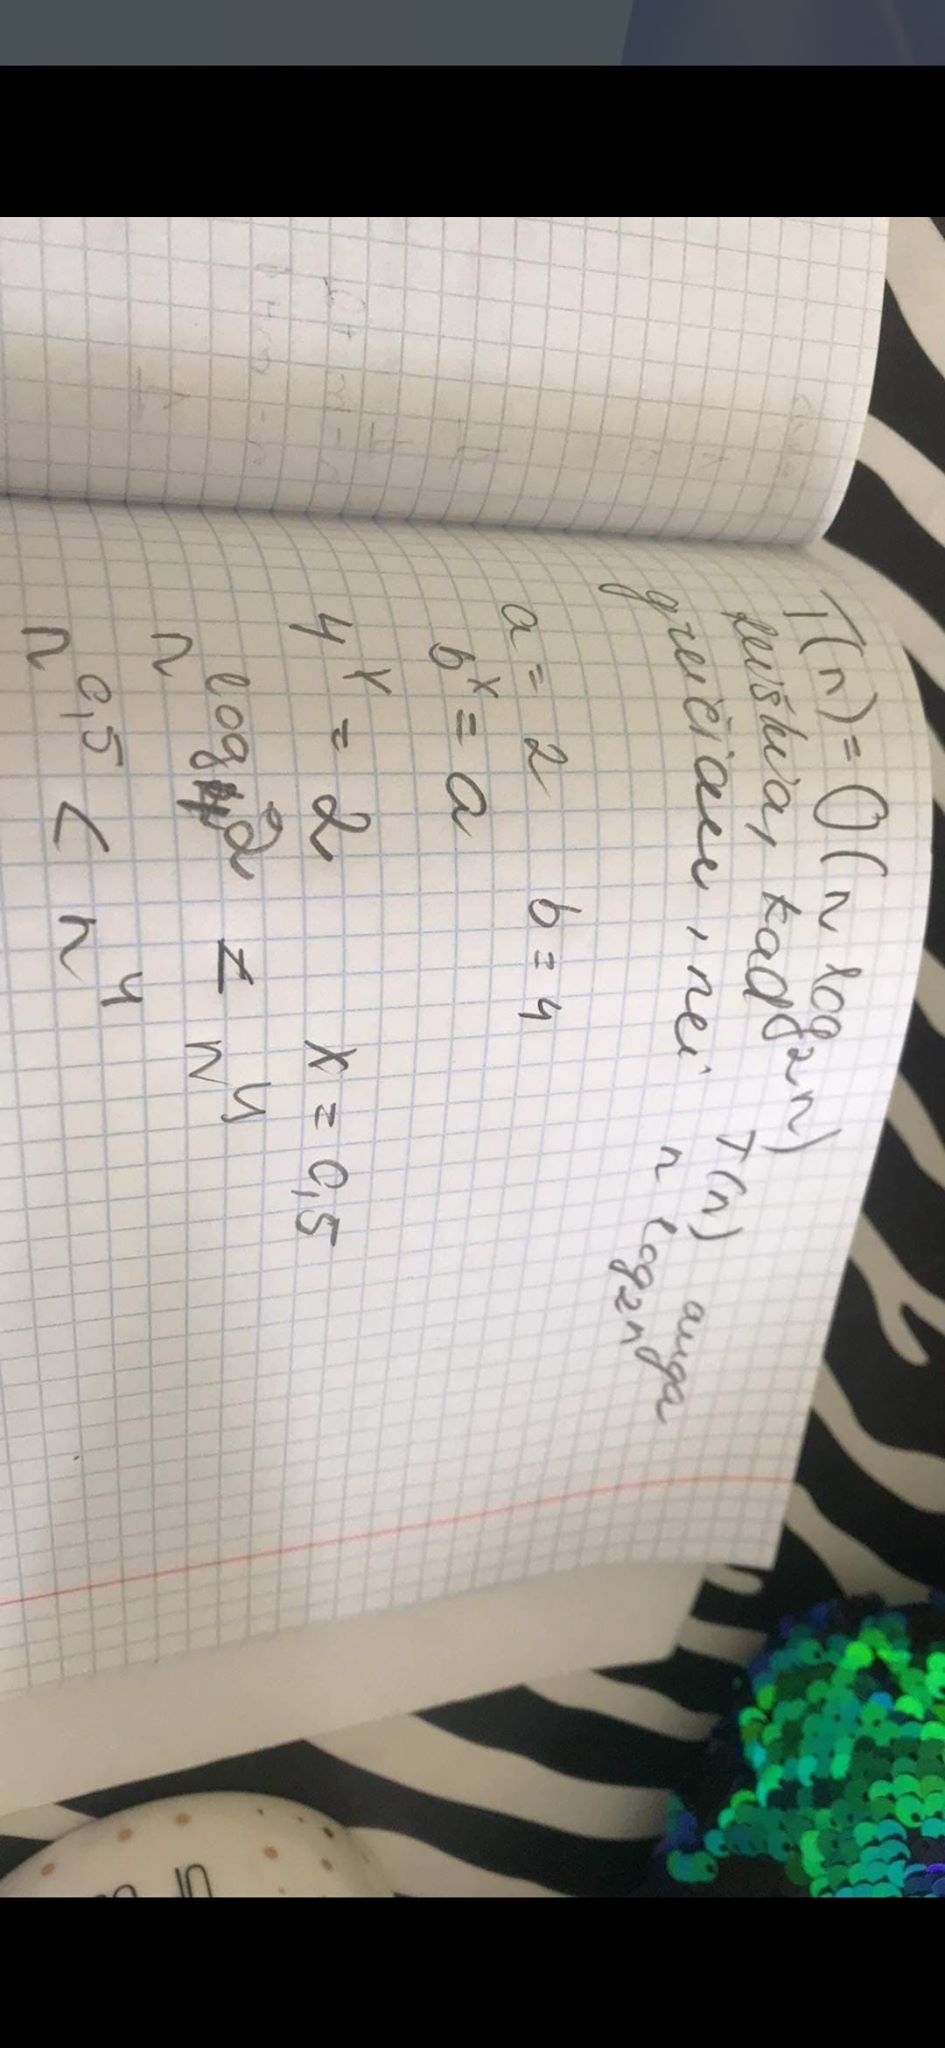 T(n) = O(n log₂n)
reiškia, kad T(n) auga
greičiau, nei n log₂n
a = 2 b = 4
bˣ = a
4ˣ = 2 x = 0,5
n^log₄2 = n⁴
n^0,5 < n⁴